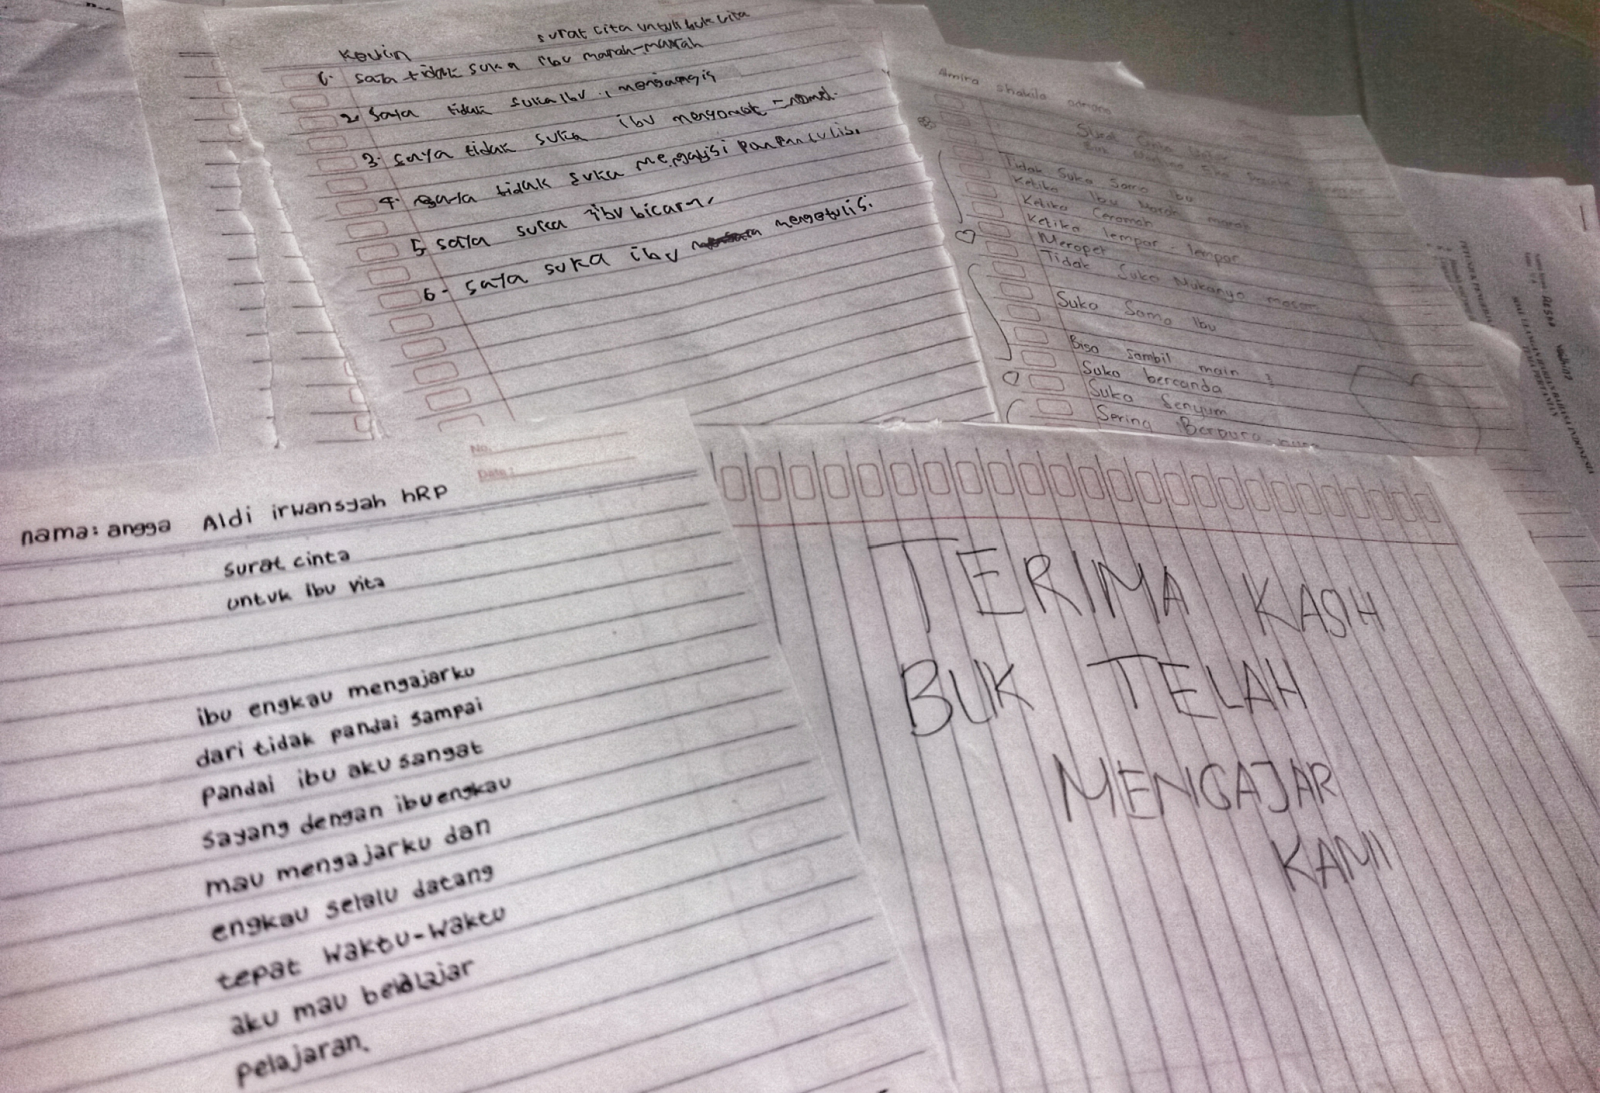 Kevin
surat cita untuk buk vita
1. saya tidak suka ibu marah-marah
2. saya tidak suka ibu
3. saya tidak suka ibu mengomel-ngomel.
4. saya tidak suka mengapisi panpan tulis.
5 saya suka ibu bicara
6. saya suka ibu mengetulis.
Amira Shakila
Tidak Suka Sama Ibu
Ketika Ibu Marah marah
Ketika Ceramah
Ketika lempar lempar
Merepet
Tidak Suka Mukanya masam
Suka Sama Ibu
Bisa sambil main
Suka bercanda
Suka Senyum
Sering Berpura
No.
Date:
nama: angga Aldi irwansyah hRp
surat cinta
untuk ibu vita
ibu engkau mengajarku
dari tidak pandai sampai
pandai ibu aku sangat
sayang dengan ibu engkau
mau mengajarku dan
engkau selalu datang
tepat waktu-waktu
aku mau belalajar
pelajaran.
TERIMA KASIH
BUK TELAH
MENGAJAR
KAMI